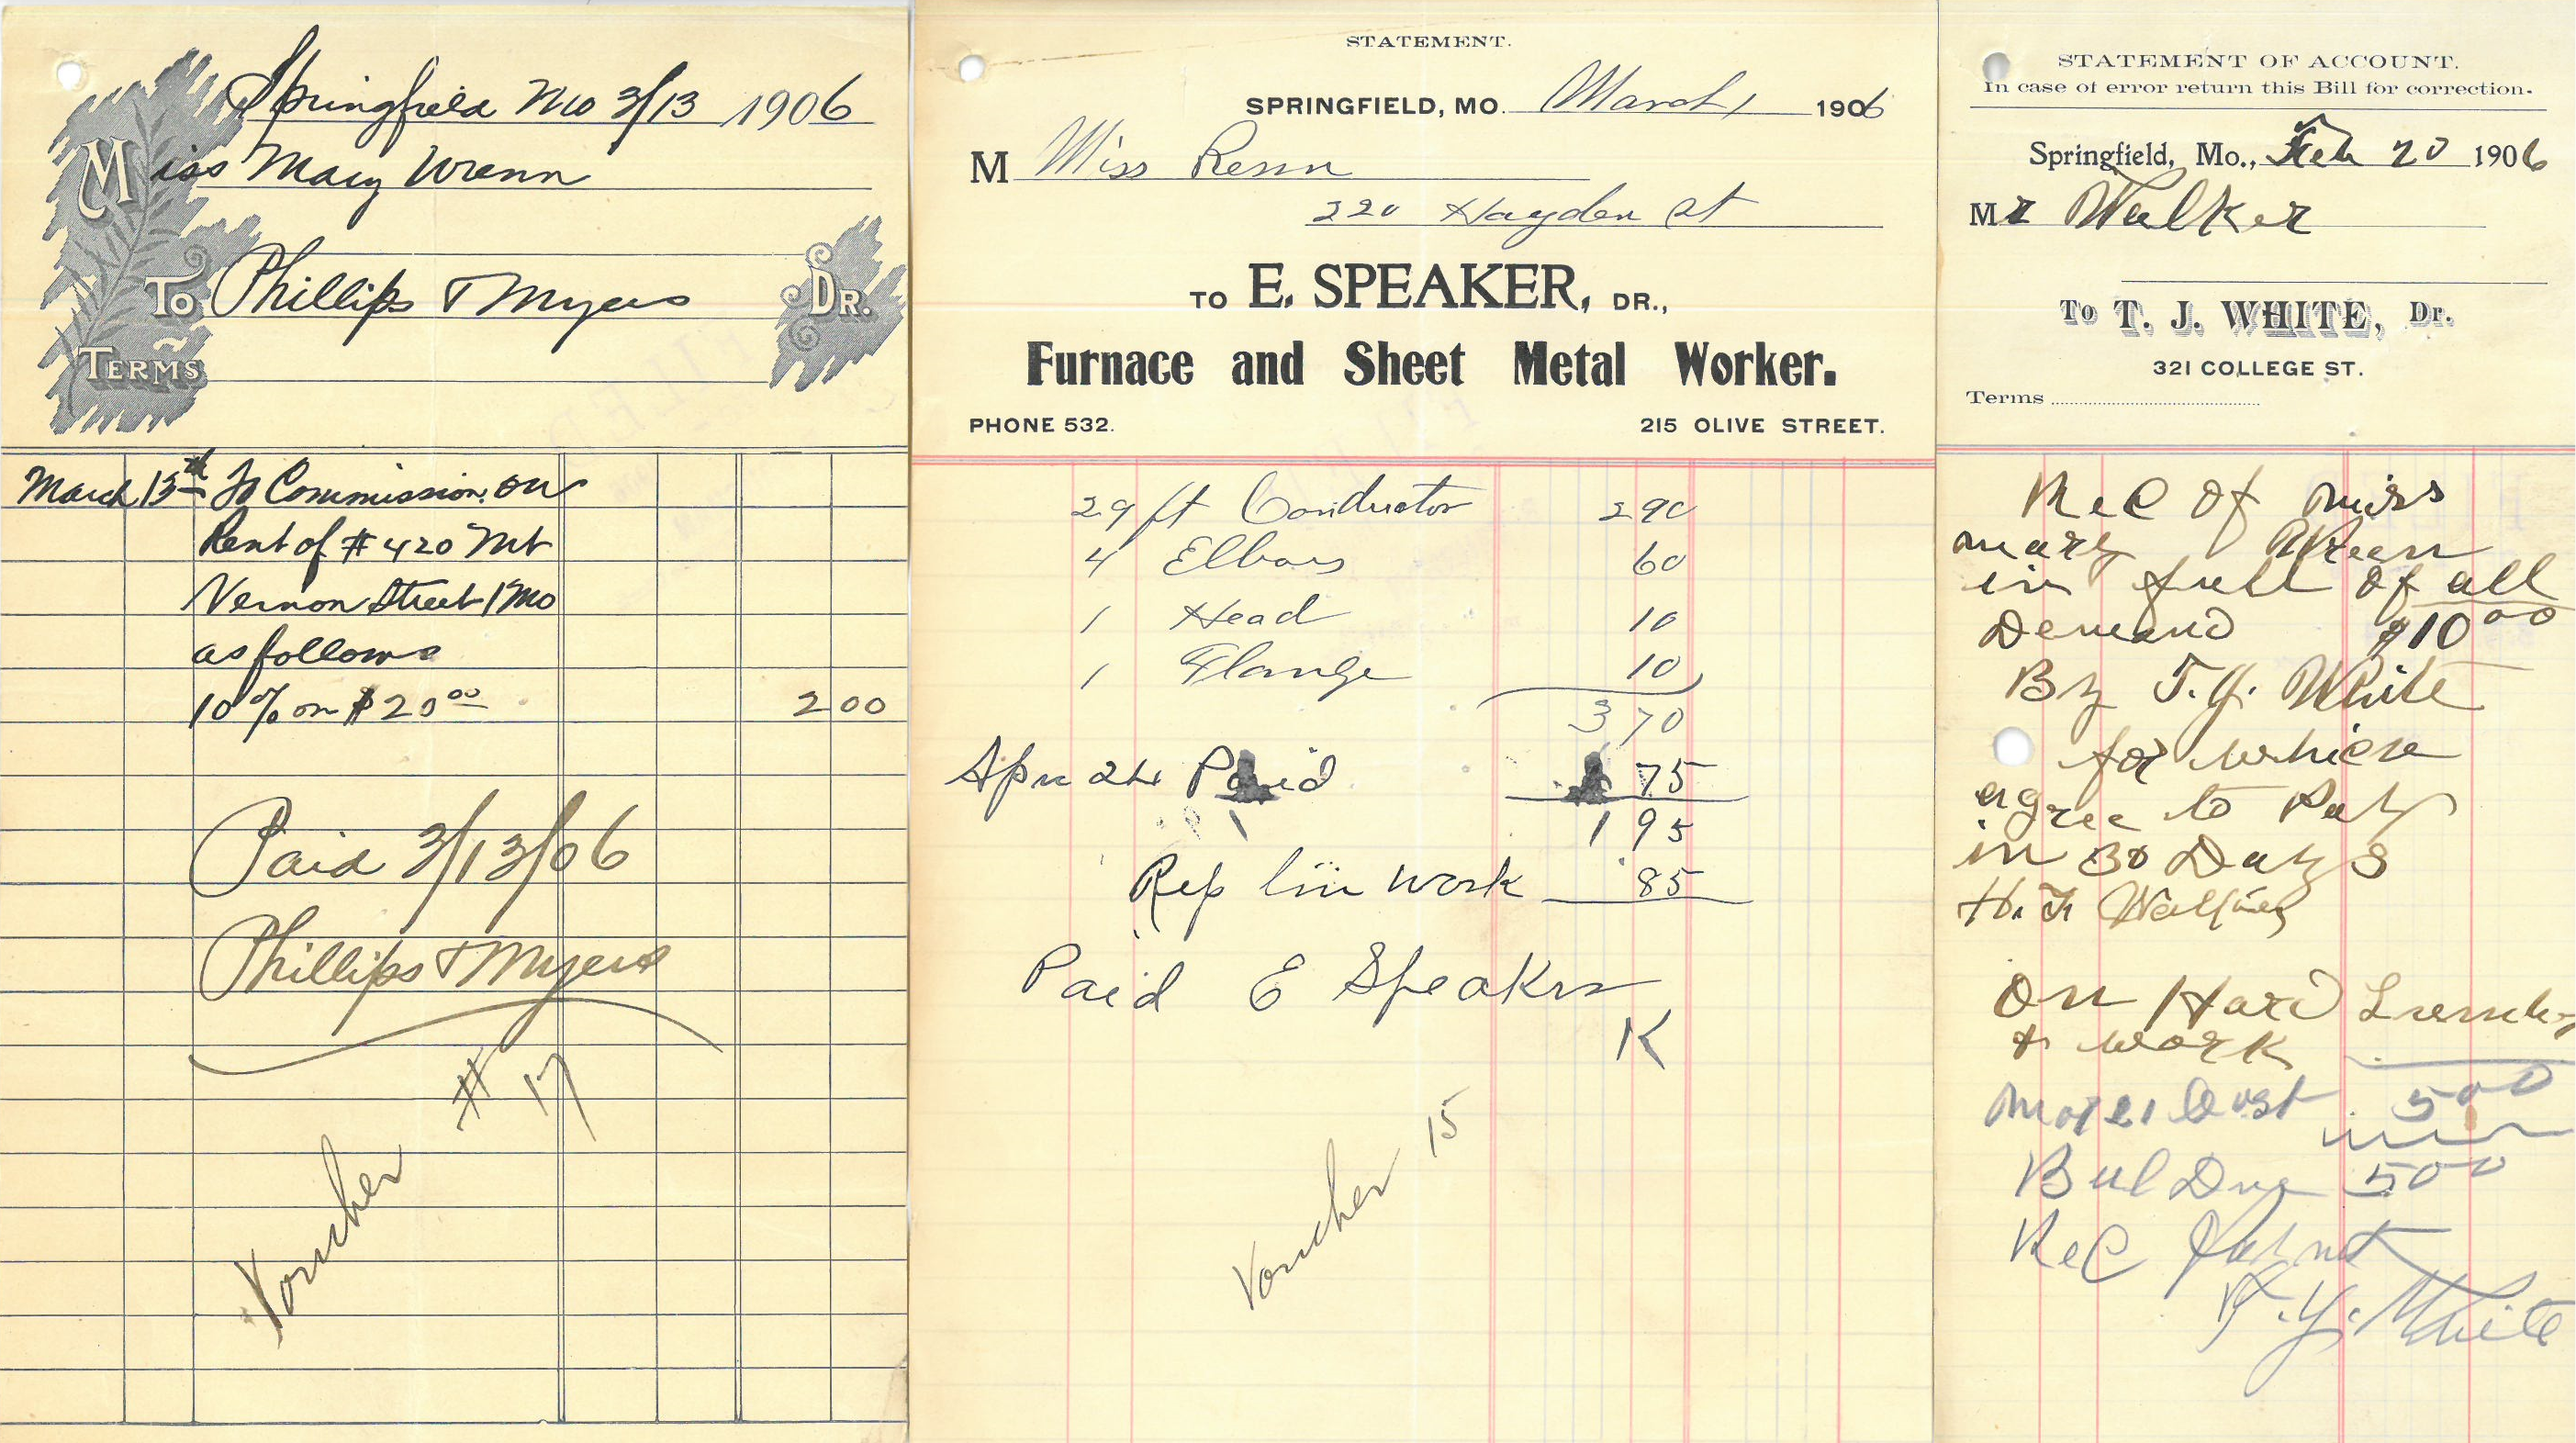 Springfield Mo 3/13 1906
Miss Mary Wrenn
To Phillips & Myers Dr.
Terms
March 13th To Commission on
Rent of # 420 Mt
Vernon Street 1 Mo
as follows
10% on $20 00 2 00
Paid 3/13/06
Phillips & Myers
Voucher # 17
STATEMENT.
SPRINGFIELD, MO. March 1 1906
M Miss Renn
220 Hayden St
TO E. SPEAKER, DR.,
Furnace and Sheet Metal Worker.
PHONE 532. 215 OLIVE STREET.
29 ft Conductor 290
4 Elbows 60
1 Head 10
1 Flange 10
370
Paid 75
195
Rep work 85
Paid E Speaker
K
Voucher 15
STATEMENT OF ACCOUNT.
In case of error return this Bill for correction.
Springfield, Mo., Feb 20 1906
Mr Walker
To T. J. WHITE, Dr.
321 COLLEGE ST.
Terms
Rec of miss
mary Wreen
in full of all
Demand $10 00
By T. J. White
for which
agree to Pay
in 30 Days
H. F.
On Hard
& work
500
Bal Due 500
Rec
T. J. White